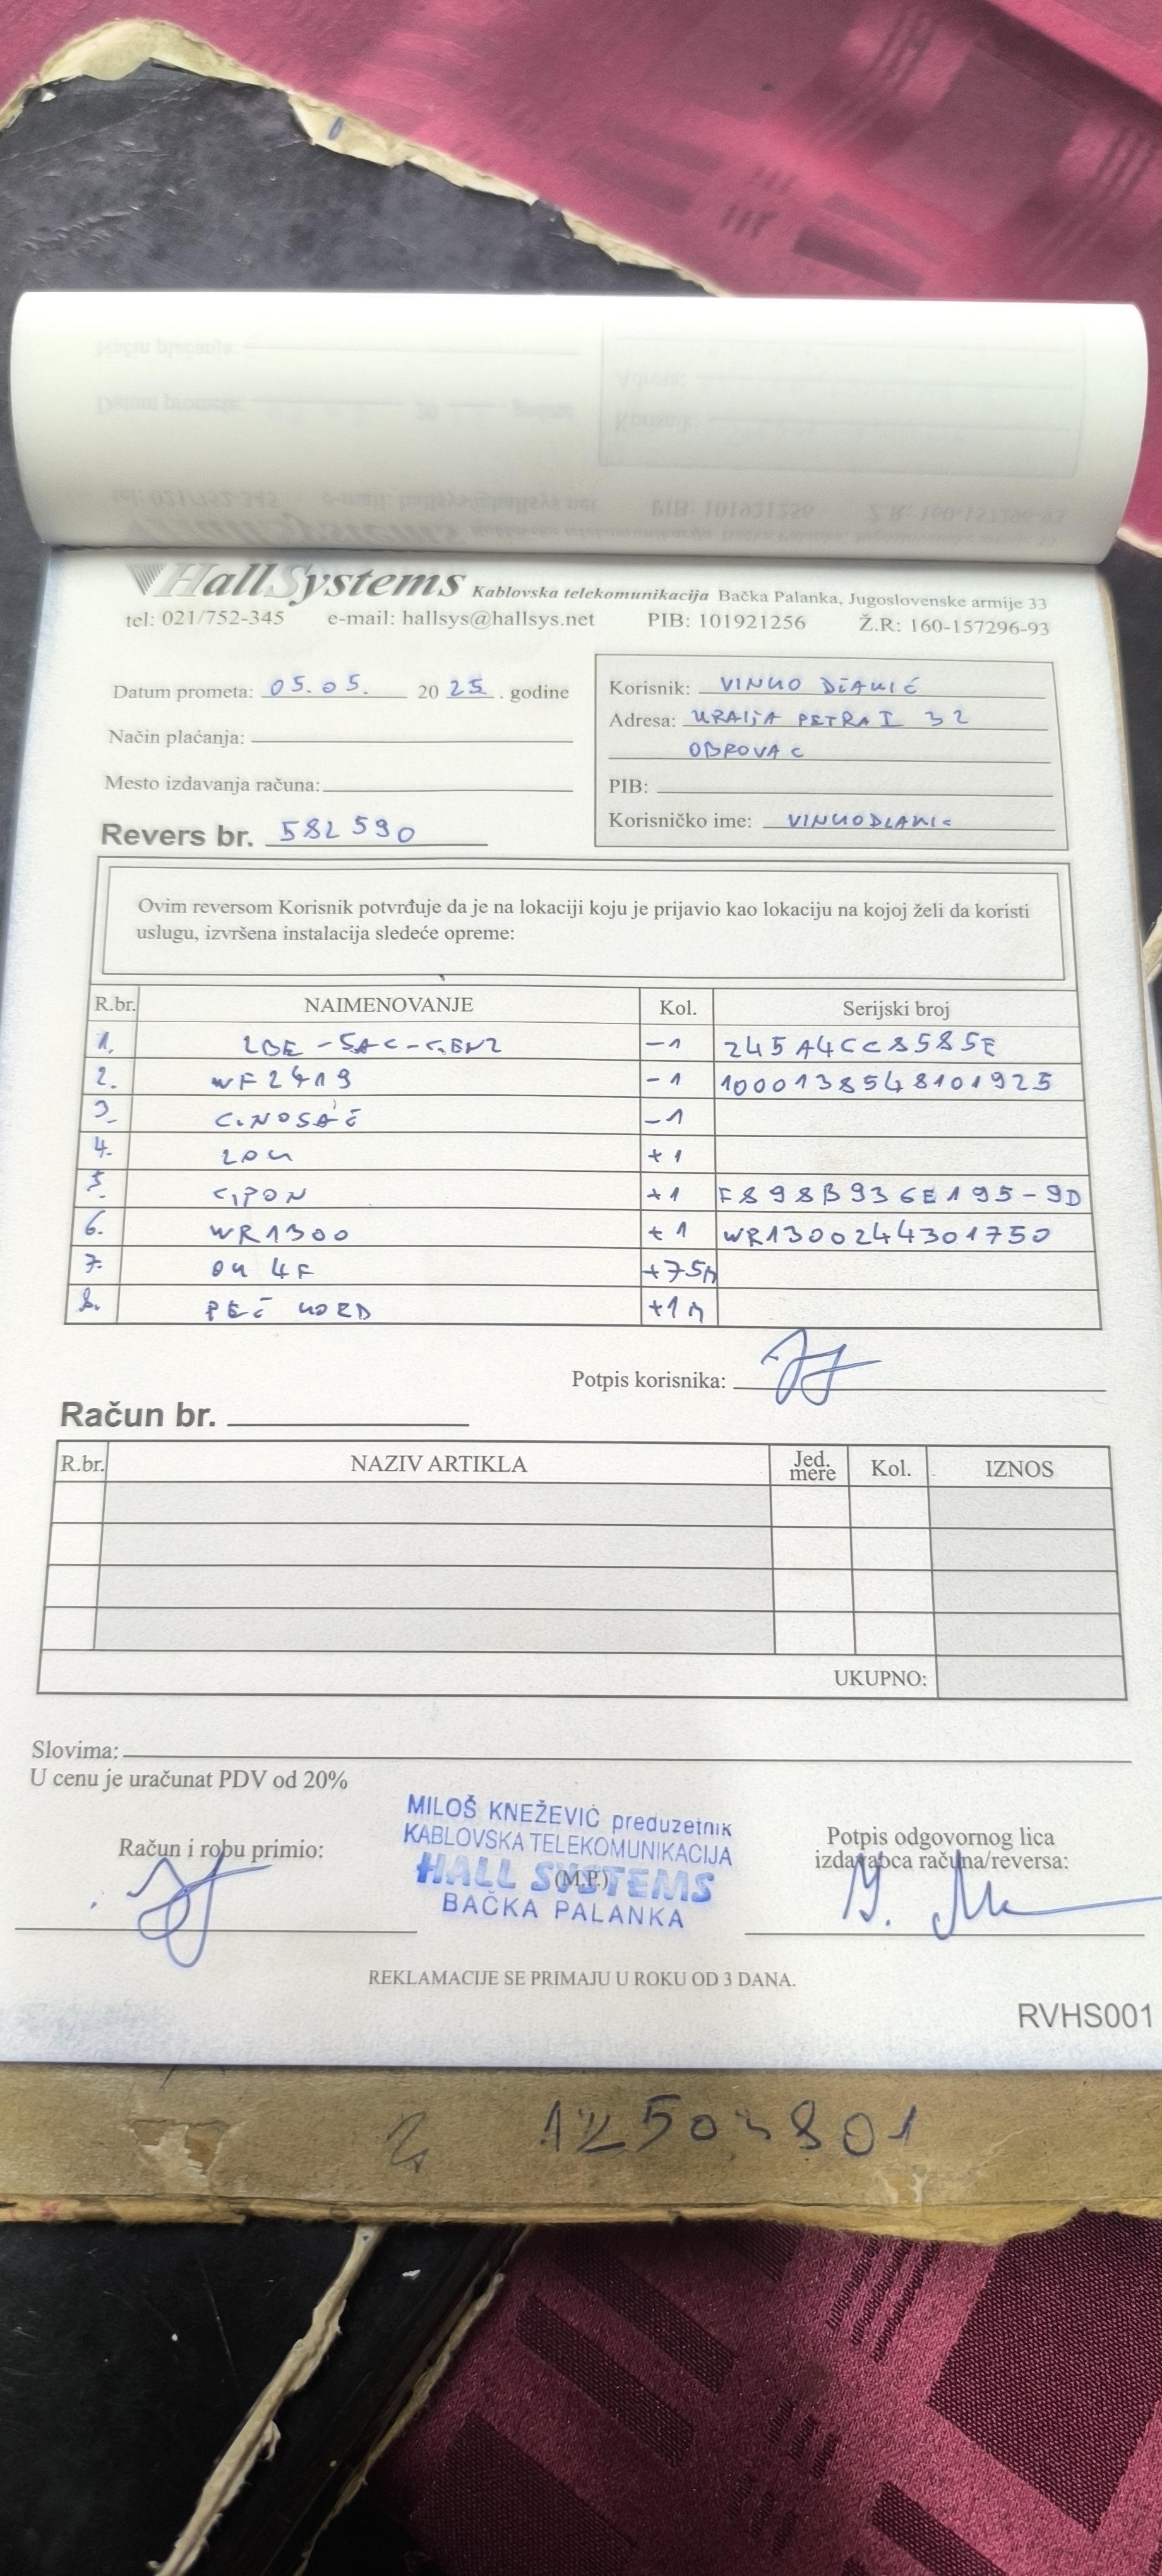 HallSystems Kablovska telekomunikacija Bačka Palanka, Jugoslovenske armije 33
tel: 021/752-345 e-mail: hallsys@hallsys.net PIB: 101921256 Ž.R: 160-157296-93
Datum prometa: 05.05. 2025. godine
Način plaćanja:
Mesto izdavanja računa:
Revers br. 582590
Korisnik: VINKO
Adresa: KRALJA PETRA I 32
OBROVAC
PIB:
Korisničko ime: VINKODLAKIC
Ovim reversom Korisnik potvrđuje da je na lokaciji koju je prijavio kao lokaciju na kojoj želi da koristi
uslugu, izvršena instalacija sledeće opreme:
R.br. NAIMENOVANJE Kol. Serijski broj
1. LBE-5AC-GEN2 -1 245A4CC8585E
2. WF2419 -1 1000138548101925
3. C.NOSAČ -1 
4. ZOK +1
5. GPON +1 F898B936E195-9D
6. WR1300 +1 WR1300244301750
7. OK 4F +75m
8. PEČ KORD +1m
Potpis korisnika:
Račun br.
R.br. NAZIV ARTIKLA Jed. mere Kol. IZNOS
UKUPNO:
Slovima:
U cenu je uračunat PDV od 20%
MILOŠ KNEŽEVIĆ preduzetnik
KABLOVSKA TELEKOMUNIKACIJA
HALL SYSTEMS
(M.P.)
BAČKA PALANKA
Račun i robu primio:
Potpis odgovornog lica
izdavaoca računa/reversa:
REKLAMACIJE SE PRIMAJU U ROKU OD 3 DANA.
RVHS001